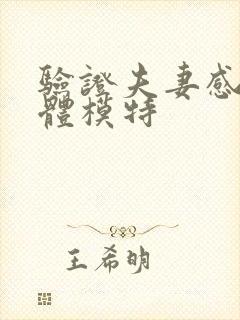 驗證夫妻感
體模特
王希明